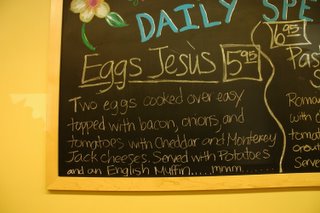 DAILY SPE
Eggs Jesùs 5.95
Two eggs cooked over easy
topped with bacon, onions, and
tomatoes with Cheddar and Monterey
Jack cheeses. Served with Potatoes
and an English Muffin..... mmm.....
6.95
Past
Roma
with
tomat
crout
Serve